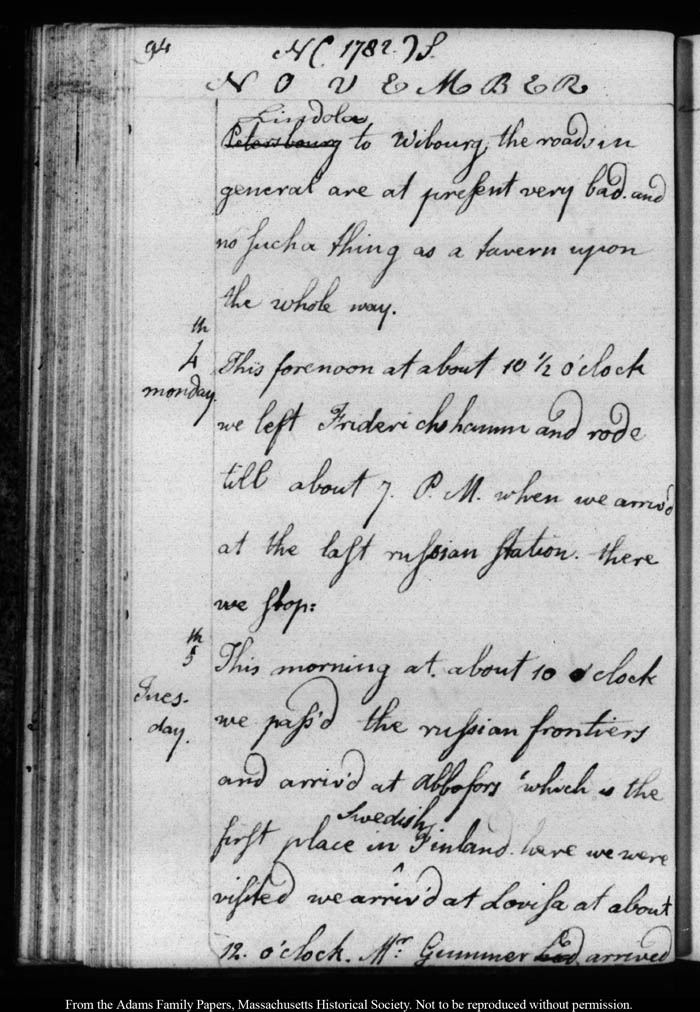 94
N(. 1782.)S.
NOVEMBER
Lindola
Petersbourg to Wibourg, the roads in
general are at preſent very bad. and
no ſuch a thing as a tavern upon
the whole way.
th
4
monday.
This forenoon at about 10 1/2 o'clock
we left Friderichshamm and rode
till about 7. P. M. when we arriv'd
at the laſt ruſsian ſtation. there
we ſtop:
th
5
Tues-
day.
This morning at. about 10 o'clock
we paſs'd the ruſsian frontiers
and arriv'd at Abbofors which is the
Swedish
firſt place in ^ Finland. here we were
viſited we arriv'd at Loviſa at about
12. o'clock. Mr: Gummer arrived
From the Adams Family Papers, Massachusetts Historical Society. Not to be reproduced without permission.